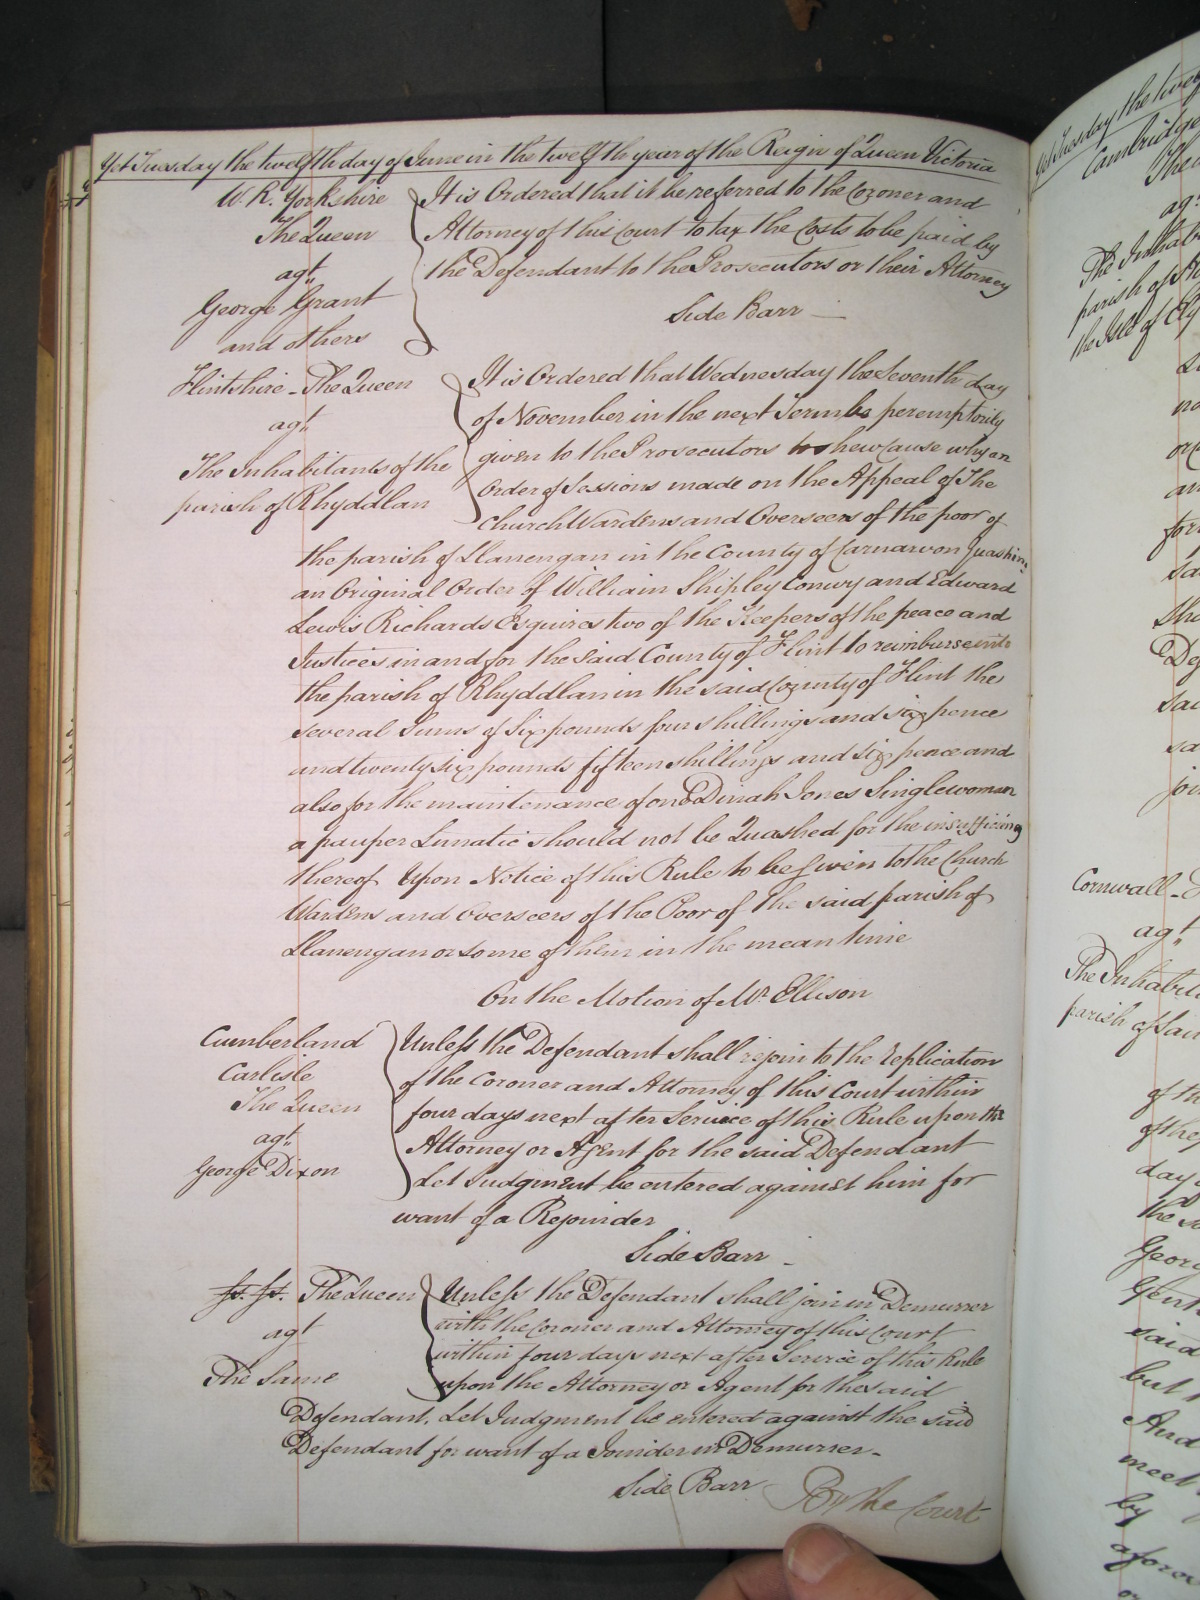 Yet Tuesday the twelfth day of June in the twelfth year of the Reign of Queen Victoria
W. R. Yorkshire
The Queen
agt.
George Grant
and others
It is Ordered that it be referred to the Coroner and
Attorney of this Court to tax the Costs to be paid by
the Defendant to the Prosecutors or their Attorney
Side Barr
Flintshire - The Queen
agt.
The Inhabitants of the
parish of Rhyddlan
It is Ordered that Wednesday the Seventh day
of November in the next Term be peremptorily
given to the Prosecutors to shew Cause why an
Order of Sessions made on the Appeal of The
Church Wardens and Overseers of the poor of
the parish of Llanengan in the County of Carnarvon Quashing
an Original Order of William Shipley Conwy and Edward
Lewis Richards Esquires two of the Keepers of the peace and
Justices in and for the said County of Flint to reimburse into
the parish of Rhyddlan in the said County of Flint the
several Sums of Six pounds four shillings and six pence
and twenty six pounds fifteen shillings and six pence and
also for the maintenance of one Dinah Jones Singlewoman
a pauper Lunatic should not be Quashed for the insufficiency
thereof Upon Notice of this Rule to be Given to the Church
Wardens and Overseers of the Poor of the said parish of
Llanengan or some of them in the mean time
On the Motion of Mr. Ellison
Cumberland
Carlisle
The Queen
agt.
George Dixon
Unless the Defendant shall rejoin to the Replication
of the Coroner and Attorney of this Court within
four days next after Service of this Rule upon the
Attorney or Agent for the said Defendant
Let Judgment be entered against him for
want of a Rejoinder
Side Barr
The Queen
agt
The Same
Unless the Defendant shall join in Demurrer
with the Coroner and Attorney of this Court
within four days next after Service of this Rule
upon the Attorney or Agent for the said
Defendant. Let Judgment be entered against the said
Defendant for want of a Joinder in Demurrer -
Side Barr
By the Court
Yet Tuesday the twelf
Cambridge
The
agt
The Inhab
parish of
the Isle of Ely
Cornwall -
agt.
The Inhabit
parish of Sain
of th
of the
day
the
Georg
Gent
said
but
And
meet
by
afores